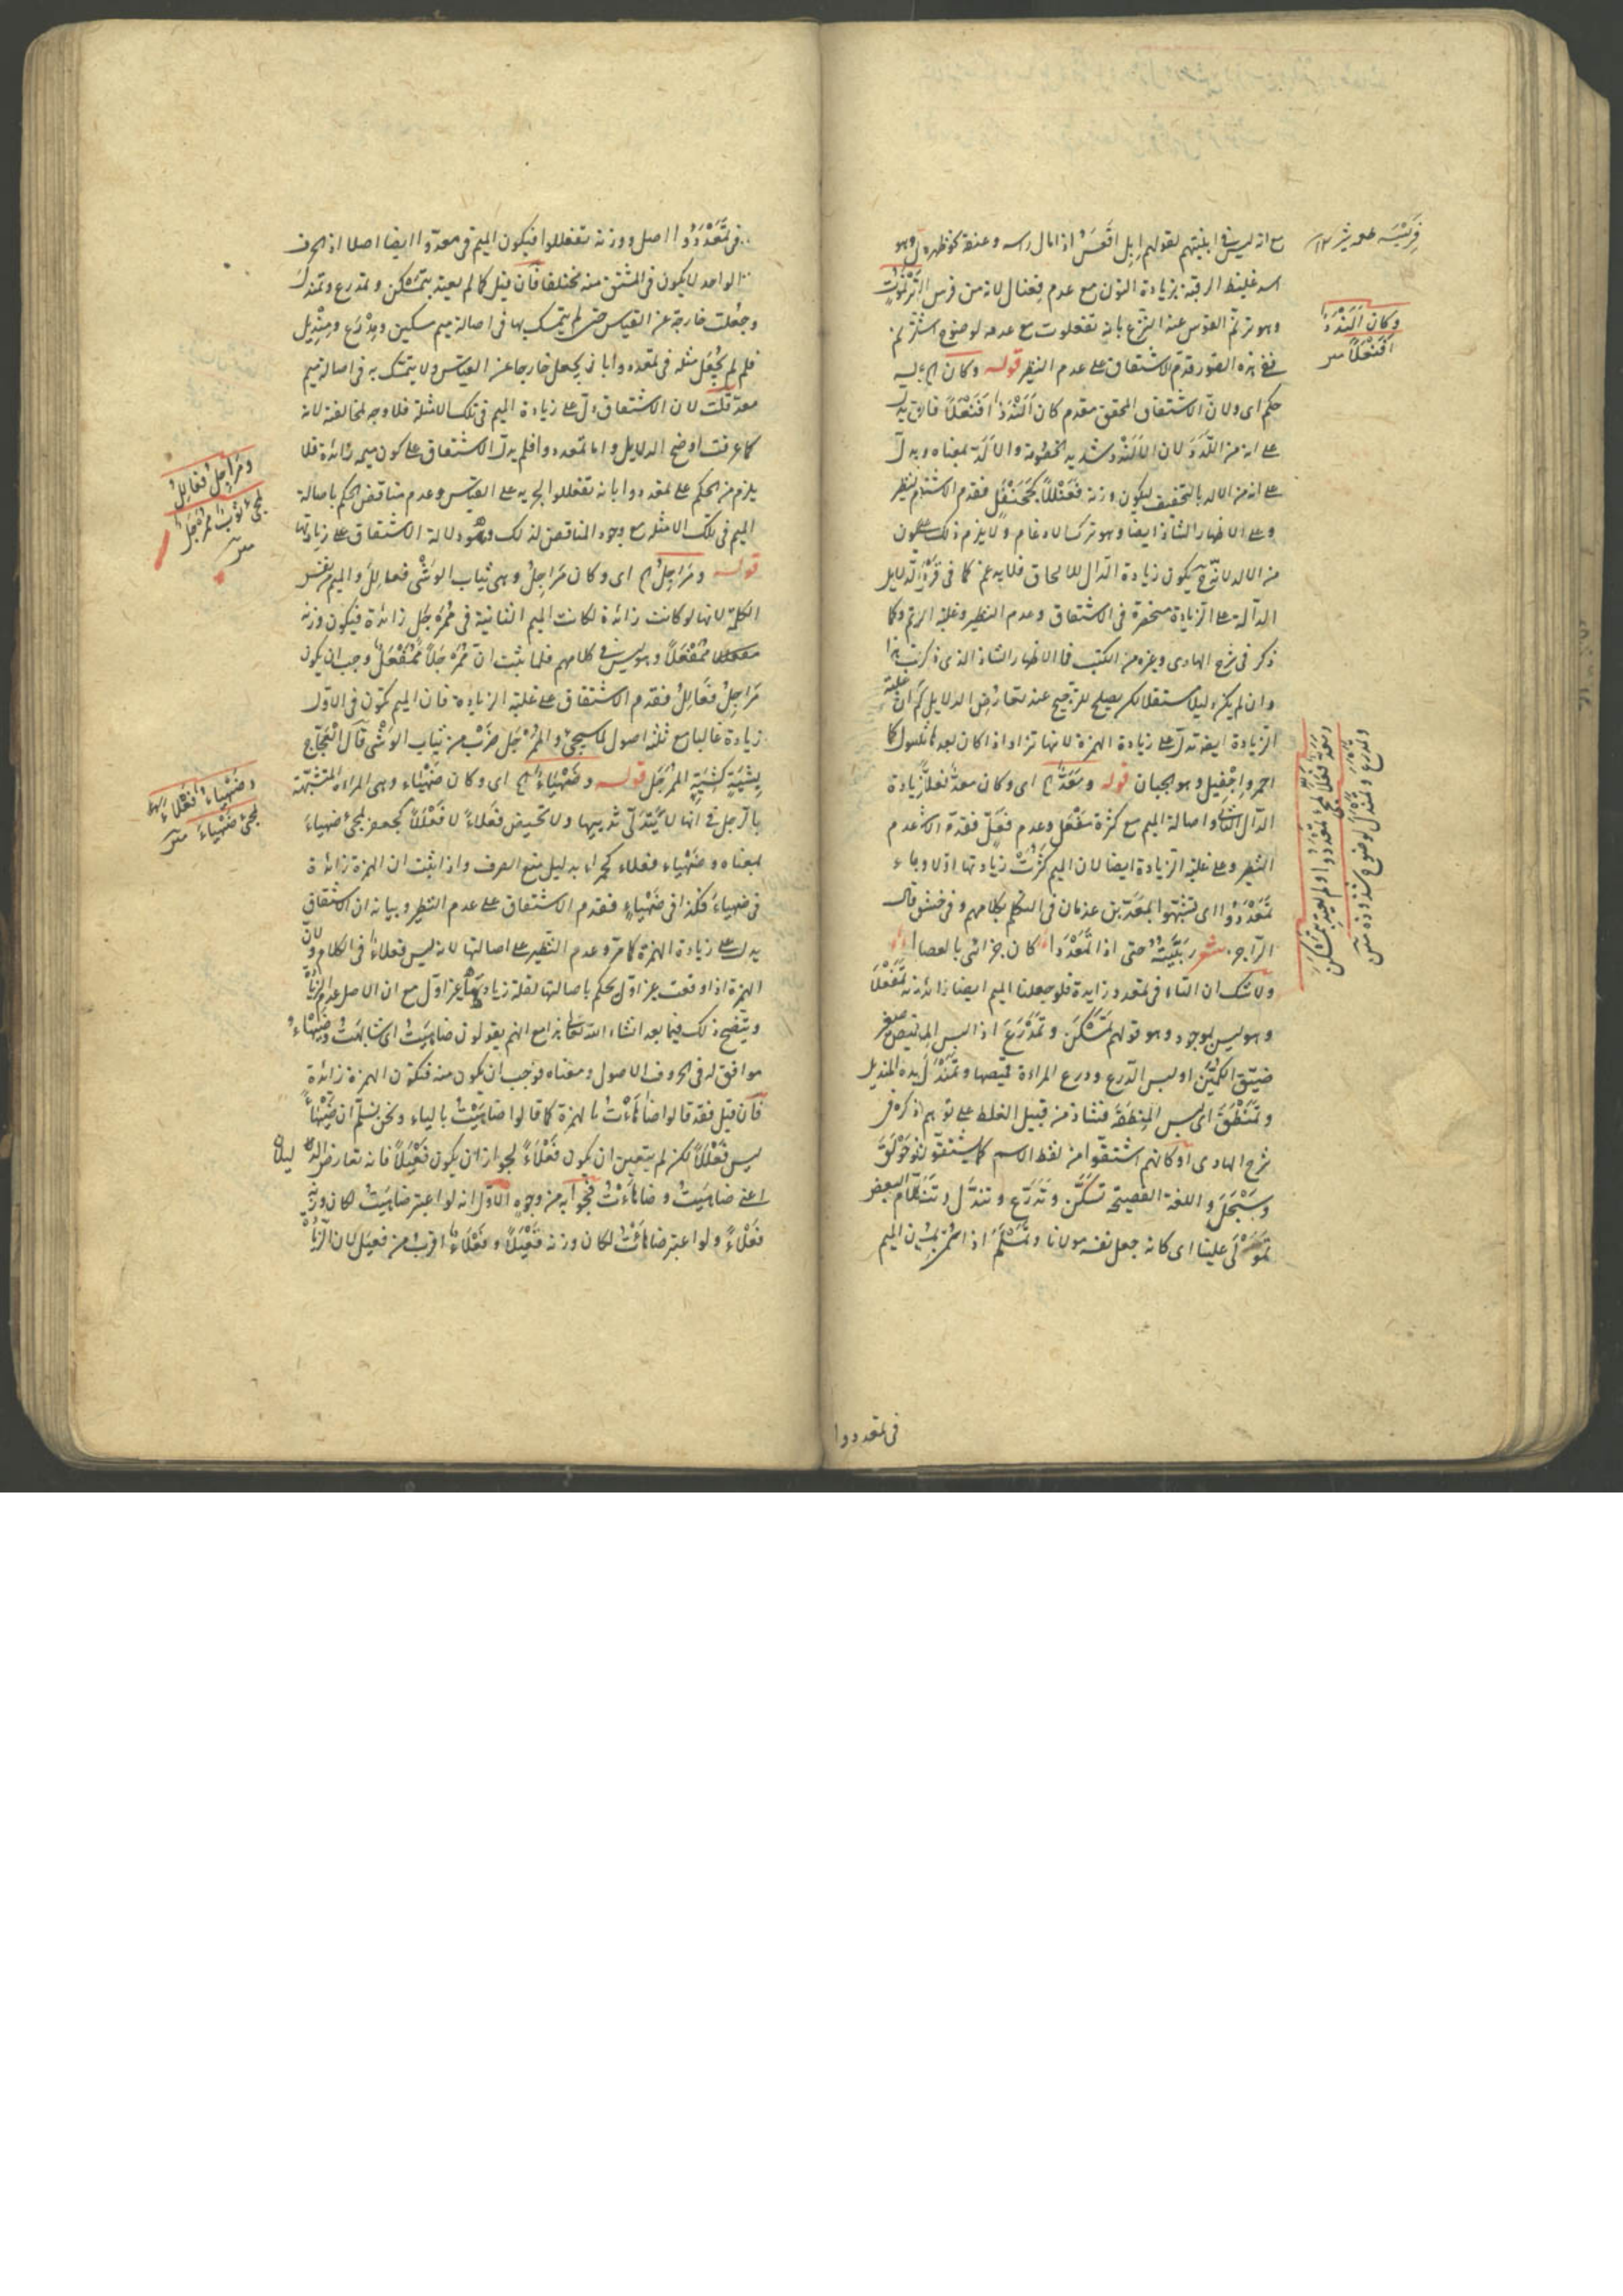 مع انه ليس في ابنيتهم لقولهم ابل اقعس اذا مال راسه وعنقه نحو ظهره
اسد غليظ الرقبة بزيادة النون مع عدم فعنال لانه من فرس الترنموت
وهو ترنم القوس عند النزع بانه تفعلوت مع عدمه لوضوح اشتق ترنم
ففي هذه الصور قدم الاشتقاق على عدم النظير قوله وكان الخ ليس
حكم اى ولان الاشتقاق المحقق مقدم كان الندد افنعلا فانه يدل
على انه من اللدد لان الالندد شديد الخصومة والالد بمعناه ويدل
على انه من الالد بالتخفيف ليكون وزنه فعنللا كجحنفل فقدم الاشتقاق
وعلى الاظهار الشاذ ايضا وهو ترك الادغام ولا يلزم ذلك على كون
من الالد لانه ح يكون زيادة الدال للالحاق فلا يدغم كما في قردد الدلايل
الدالة على الزيادة منحصرة في الاشتقاق وعدم النظير وغلبة الزيادة كما
ذكر في شرح الهادى وغيره من الكتب فالاظهار الشاذ الذى ذكرت هذا
وان لم يكن دليلا مستقلا لكن يصلح للترجيح عند تعارض الدلايل ثم ان غلبة
الزيادة ايضا تدل على زيادة الهمزة لانها تزاد اذا كان بعدها ثلثة اصول كما
احمر واجفيل وهو الجبان قوله ومعد الخ اى وكان معد فعلا بزيادة
الدال الثانى واصالة الميم مع كثرة مفعل وعدم فعل فقدم الاشتق عدم
النظير وعلى غلبة الزيادة ايضا لان الميم كثرت زيادتها اولا وجاء
تمعددوا اى تشبهوا بمعد بن عدنان في التكلم بكلامهم وفي خشن قال
الراجز شعر ربيته حتى اذا تمعددا كان جزائى بالعصا
ولا شك ان التاء في تمعدد زايدة فلو جعلنا الميم ايضا زائدة تمفعل
وهو ليس بموجود وهو قولهم تمسكن وتمدرع اذا لبس المدرعة
ضيق الكمين او لبس الدرع ودرع المراءة قميصها وتمندل بيده المنديل
وتمنطق اى لبس المنطقة فشاذ من قبيل الغلط على توهم ذكره في
شرح الهادى او كانهم اشتقوا من لفظ الاسم كما يشتقون نحو حولق
وسبحل واللغة الفصيحة تسكن وتدرع وتندل وتنطق
تمولى علينا اى كانه جعل نفسه مولانا وتمسلم اذا
وكان الندد
افنعلا متن
ومعد فعلا لمجئ تمعددوا ولم يعتد بتمسكن
وتمدرع وتمندل لوضوح شذوذه متن
في تمعددوا
في تمعددوا اصل ووزنه تفعللوا فيكون الميم في معد ايضا اصلا اذ الحرف
الواحد لا يكون في المشتق منه مختلفا فان قيل كما لم يعتد بتمسكن وتمدرع وتمندل
وجعلت خارجة عن القياس حتى لم يتمسك بها في اصالة ميم مسكين ومدرع ومنديل
فلم لم يجعل مثله في تمعددوا بان يجعل خارجا عن القياس ولا يتمسك به في اصالة ميم
معد قلت لان الاشتقاق دل على زيادة الميم في تلك الامثلة فلا وجه لمخالفته لانه
كما عرفت اوضح الدلايل واما تمعددوا فلم يدل الاشتقاق على كون ميمه زائدة فلا
يلزم من الحكم على تمعددوا بانه تفعللوا لجريه على القياس وعدم مناقض الحكم باصالة
الميم في تلك الامثلة مع وجود المناقض لذلك وهو دلالة الاشتقاق على زيادتها
قوله ومراجل الخ اى وكان مراجل وهى ثياب الوشى فعالل والميم نفس
الكلمة لانها لو كانت زائدة لكانت الميم الثانية في ممرجل زائدة فيكون وزنه
ممفعلا وهو ليس في كلامهم فلما ثبت ان ممرجلا ممفعل وجب ان يكون
مراجل فعالل فقدم الاشتقاق على غلبة الزيادة فان الميم تكون في الاول
زيادة غالبا مع ثلثة اصول كما سيجئ والممرجل ضرب من ثياب الوشى قال العجاج
بشية كشية الممرجل قوله وضهياء الخ اى وكان ضهياء وهى المراة المتشبهة
بالرجل في انها لا يتدلى ثدييها ولا تحيض فعلاء لا فعللا كجعفر لمجئ ضهياء
بمعناه وضهياء فعلاء كحمراء بدليل منع الصرف واذا ثبت ان الهمزة زائدة
في ضهياء فكذا في ضهياء فقدم الاشتقاق على عدم النظير وبيانه ان الاشتقاق
يدل على زيادة الهمزة كما مر وعدم النظير على اصالتها لانه ليس فعلاء في الكلام ولان
الهمزة اذا وقعت غير اول يحكم باصالتها لقلة زيادتها غير اول مع ان الاصل عدم الزيادة
ويتضح ذلك فيما بعد انشاء الله تعالى هذا مع انهم يقولون ضاهيت اى شابهت وضهياء
موافق له في الحروف الاصول ومعناه فوجب ان يكون منه فتكون الهمزة زائدة
فان قيل فقد قالوا ضاهأت بالهمزة كما قالوا ضاهيت بالياء ونحن نسلم ان ضهيأ
ليس فعللا لكن لم يتعين ان يكون فعلاء لجواز ان يكون فعيلا فانه تعارض الدليلان
اعنى ضاهيت وضاهأت فجوابه من وجوه الاول انه لو اعتبر ضاهيت لكان وزنه
فعلاء ولو اعتبر ضاهأت لكان وزنه فعيلا وفعلاء اقرب من فعيل لان الزيادة
ومراجل فعالل
لمجئ ثوب ممرجل
متن
وضهياء فعلاء
لمجئ ضهياء متن